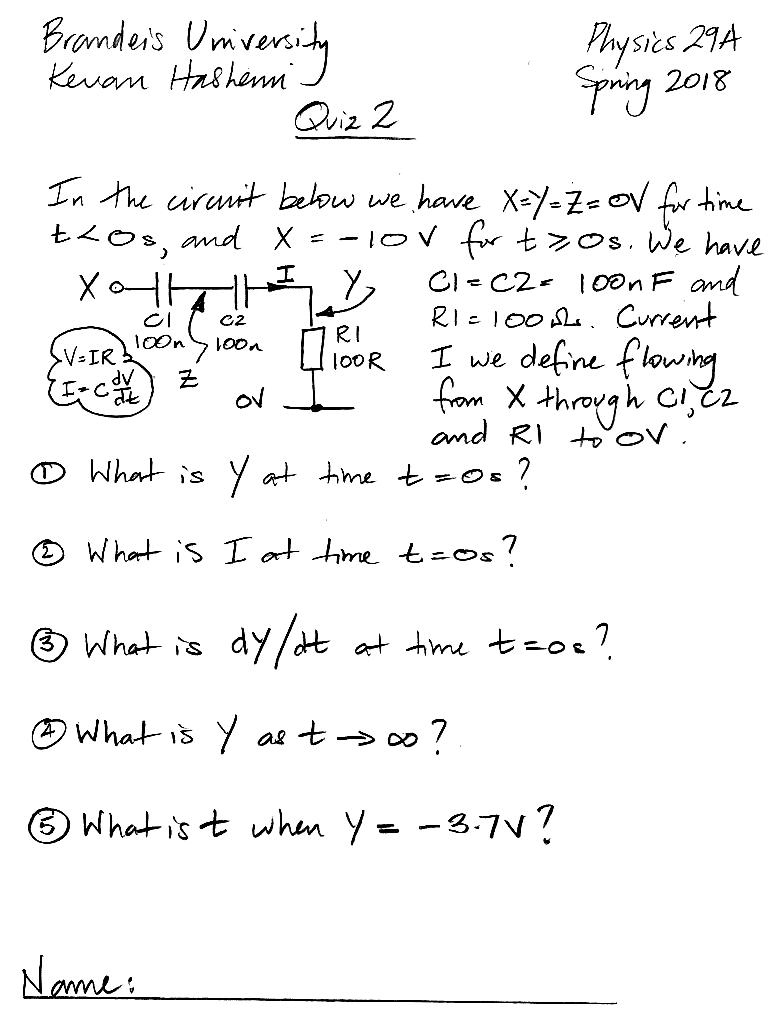 Brandeis University
Physics 29A
Kevan Hashemi
Spring 2018
Quiz 2
In the circuit below we have X=Y=Z=0V for time
t<0s, and X = -10V for t≥0s. We have
X
I
Y
C1 = C2 = 100nF and
C1
C2
R1 = 100Ω. Current
100n
100n
R1
100R
V=IR
I=C dV/dt
Z
0V
I we define flowing
from X through C1, C2
and R1 to 0V.
① What is Y at time t=0s?
② What is I at time t=0s?
③ What is dY/dt at time t=0s?
④ What is Y as t → ∞?
⑤ What is t when Y = -3.7V?
Name: